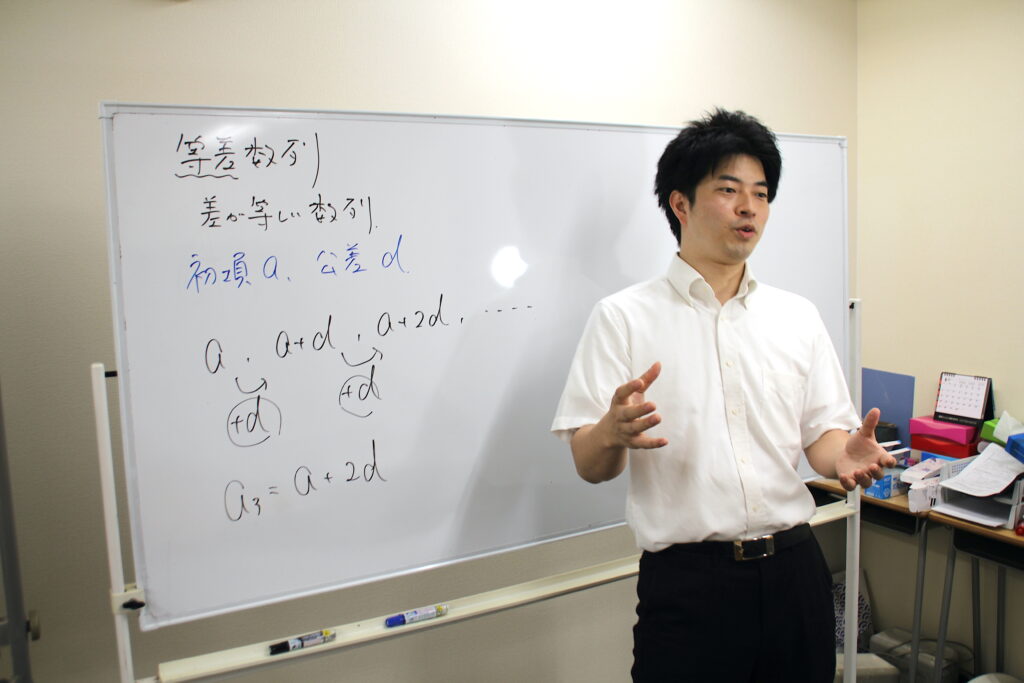 等差数列
差が等しい数列.
初項 a、公差 d.
a, a+d, a+2d, ‥‥
+d +d
a₃ = a+2d